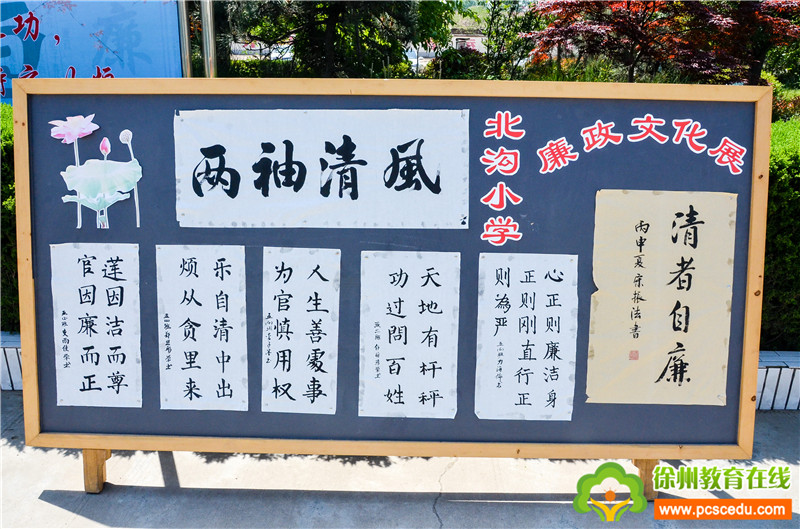 功，
廉
两袖清風
北沟小学
廉政文化展
清者自廉
丙申夏
法书
心正则廉洁身
正则刚直行正
则為严
天地有杆秤
功过問百姓
人生善處事
为官慎用权
乐自清中出
烦从贪里来
莲因洁而尊
官因廉而正
徐州教育在线
www.pcscedu.com